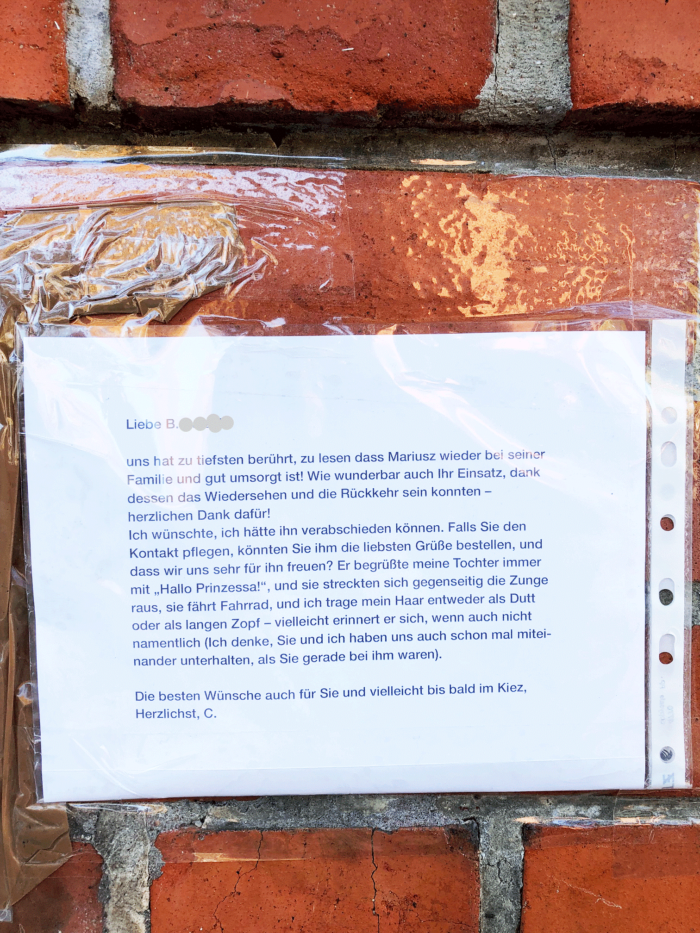 Liebe B.
uns hat zu tiefsten berührt, zu lesen dass Mariusz wieder bei seiner
Familie und gut umsorgt ist! Wie wunderbar auch Ihr Einsatz, dank
dessen das Wiedersehen und die Rückkehr sein konnten –
herzlichen Dank dafür!
Ich wünschte, ich hätte ihn verabschieden können. Falls Sie den
Kontakt pflegen, könnten Sie ihm die liebsten Grüße bestellen, und
dass wir uns sehr für ihn freuen? Er begrüßte meine Tochter immer
mit „Hallo Prinzessa!“, und sie streckten sich gegenseitig die Zunge
raus, sie fährt Fahrrad, und ich trage mein Haar entweder als Dutt
oder als langen Zopf – vielleicht erinnert er sich, wenn auch nicht
namentlich (Ich denke, Sie und ich haben uns auch schon mal mitei-
nander unterhalten, als Sie gerade bei ihm waren).
Die besten Wünsche auch für Sie und vielleicht bis bald im Kiez,
Herzlichst, C.